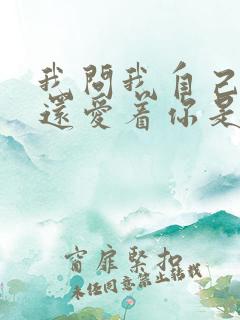 我問我自己
還愛着你是
窗扉緊扣
未經同意禁止轉載